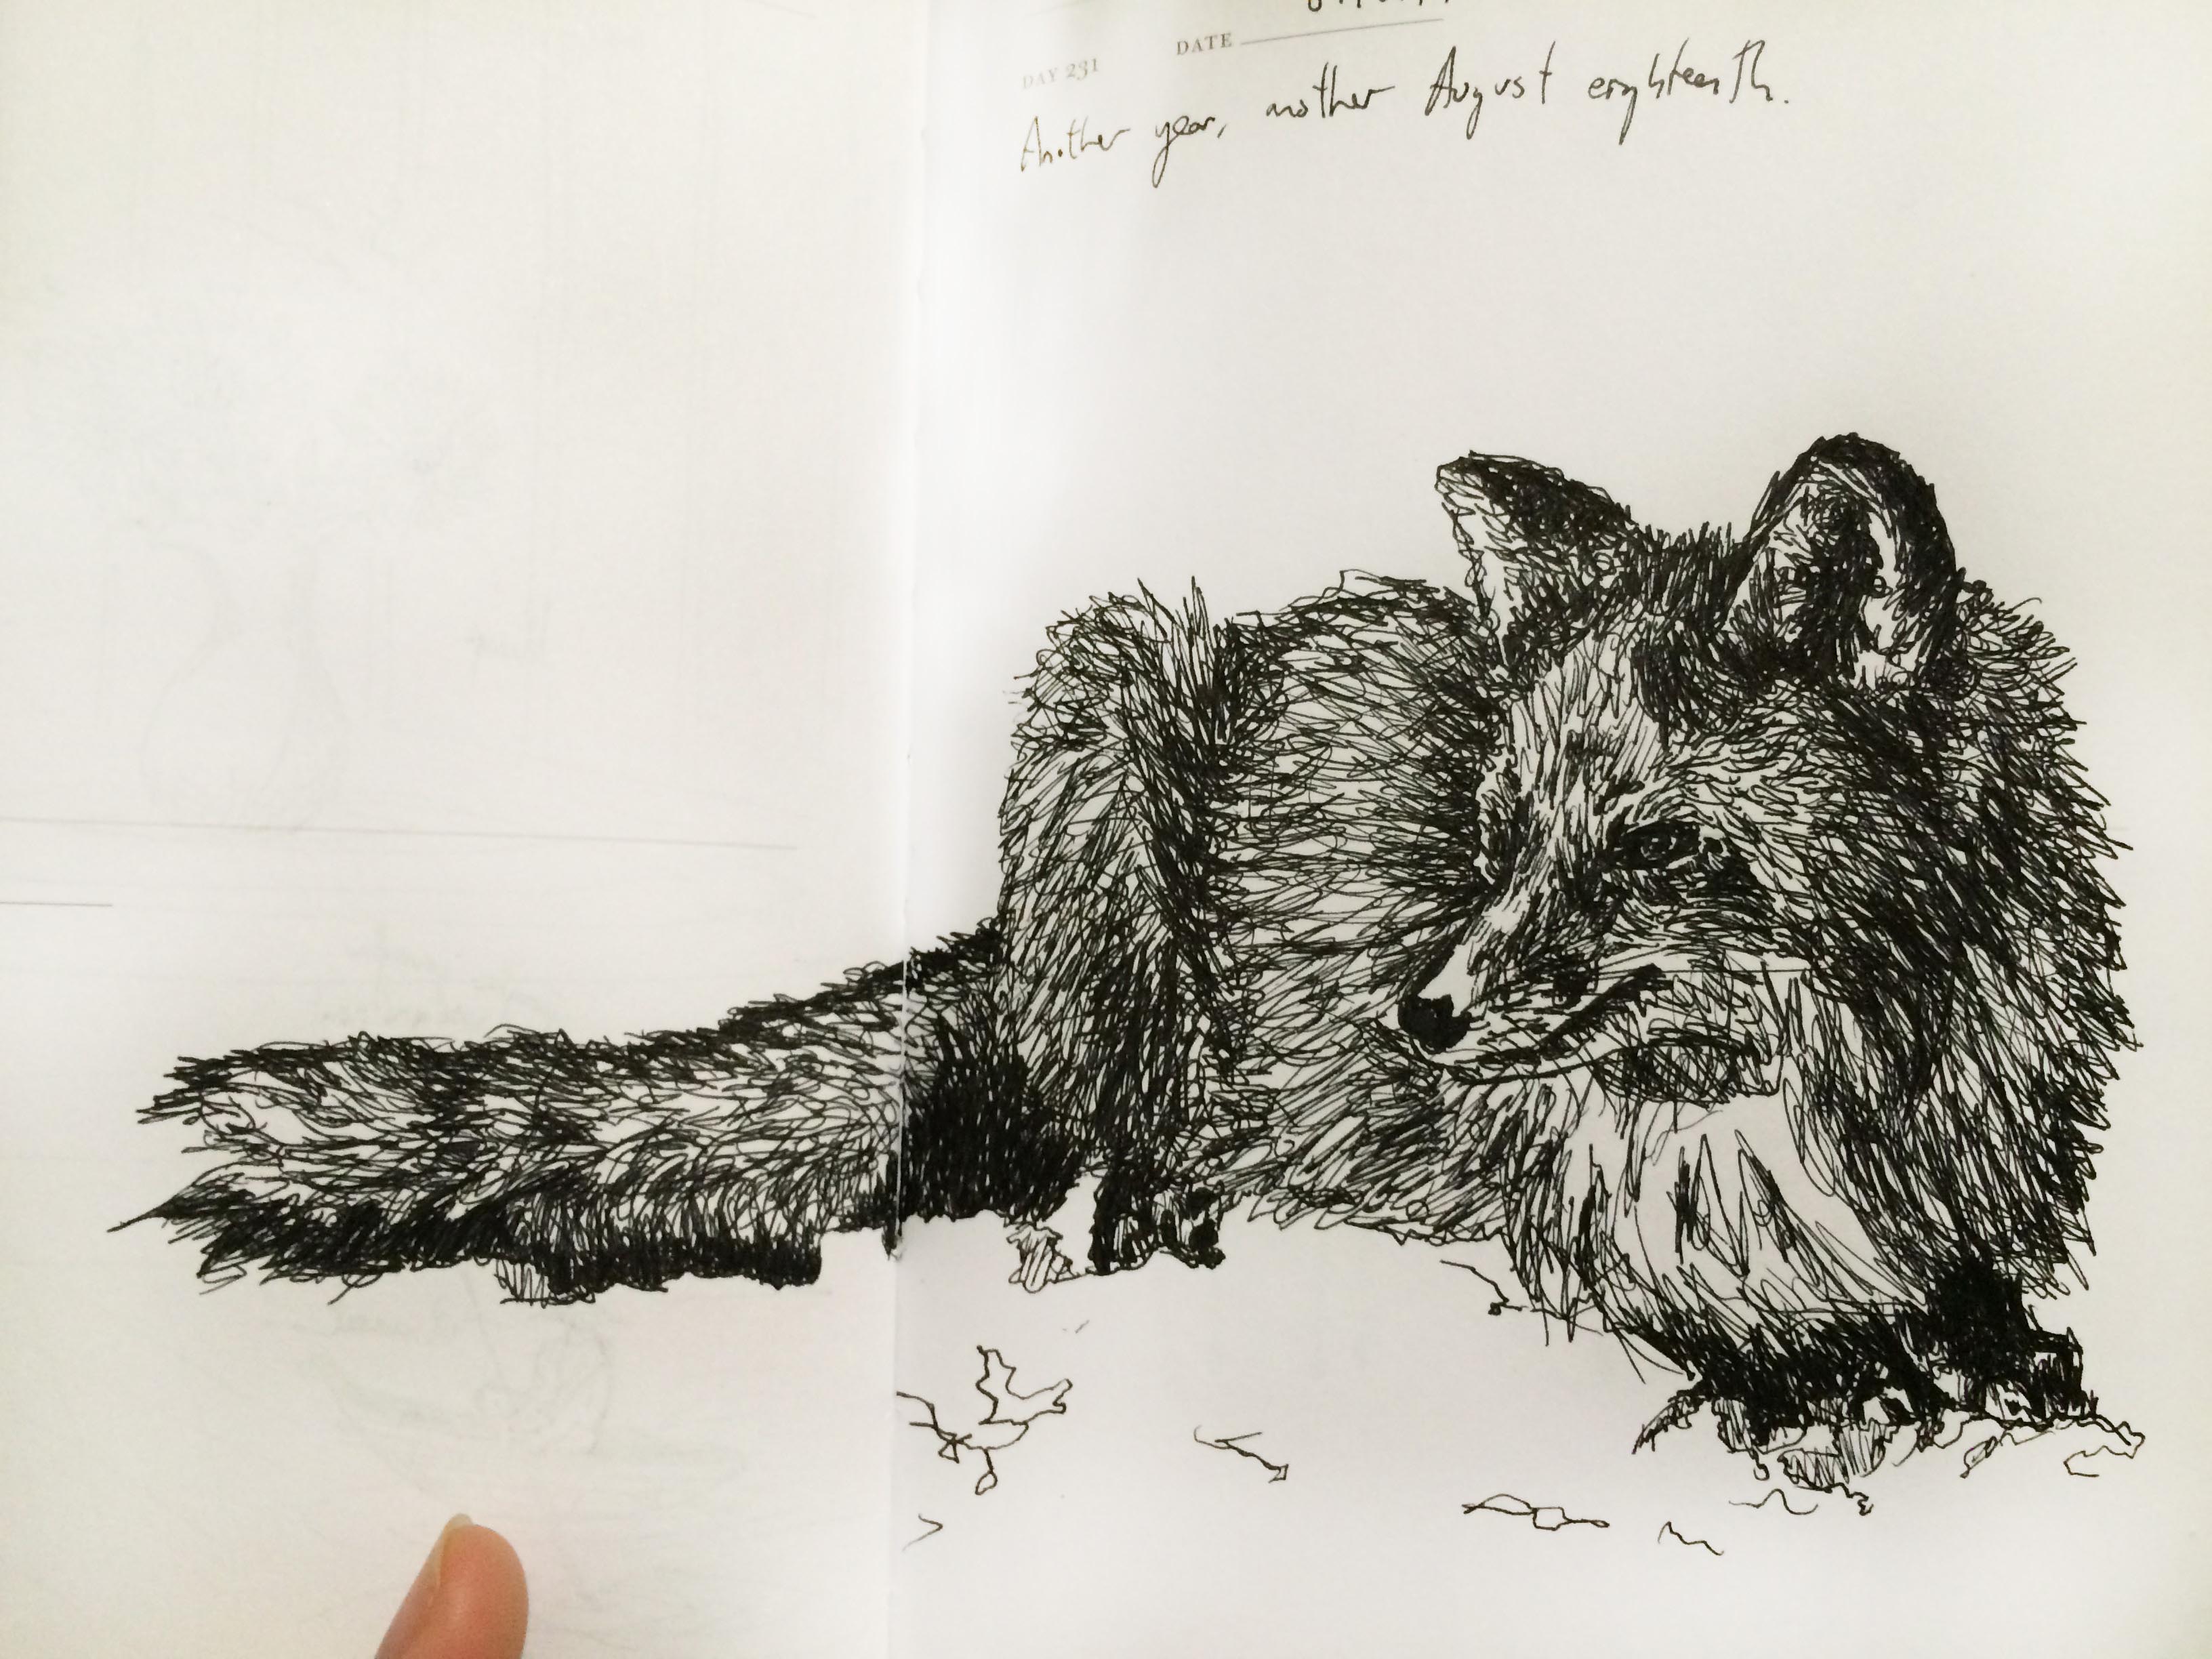 DAY 231 DATE
Another year, another August eighteenth.